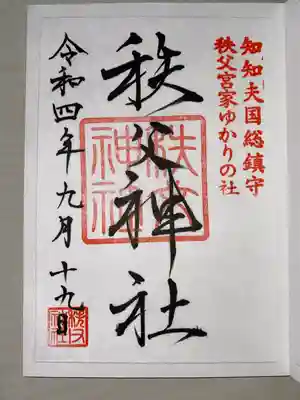 知知夫国総鎮守
秩父宮家ゆかりの社
秩父神社
令和四年九月十九日
秩父神社